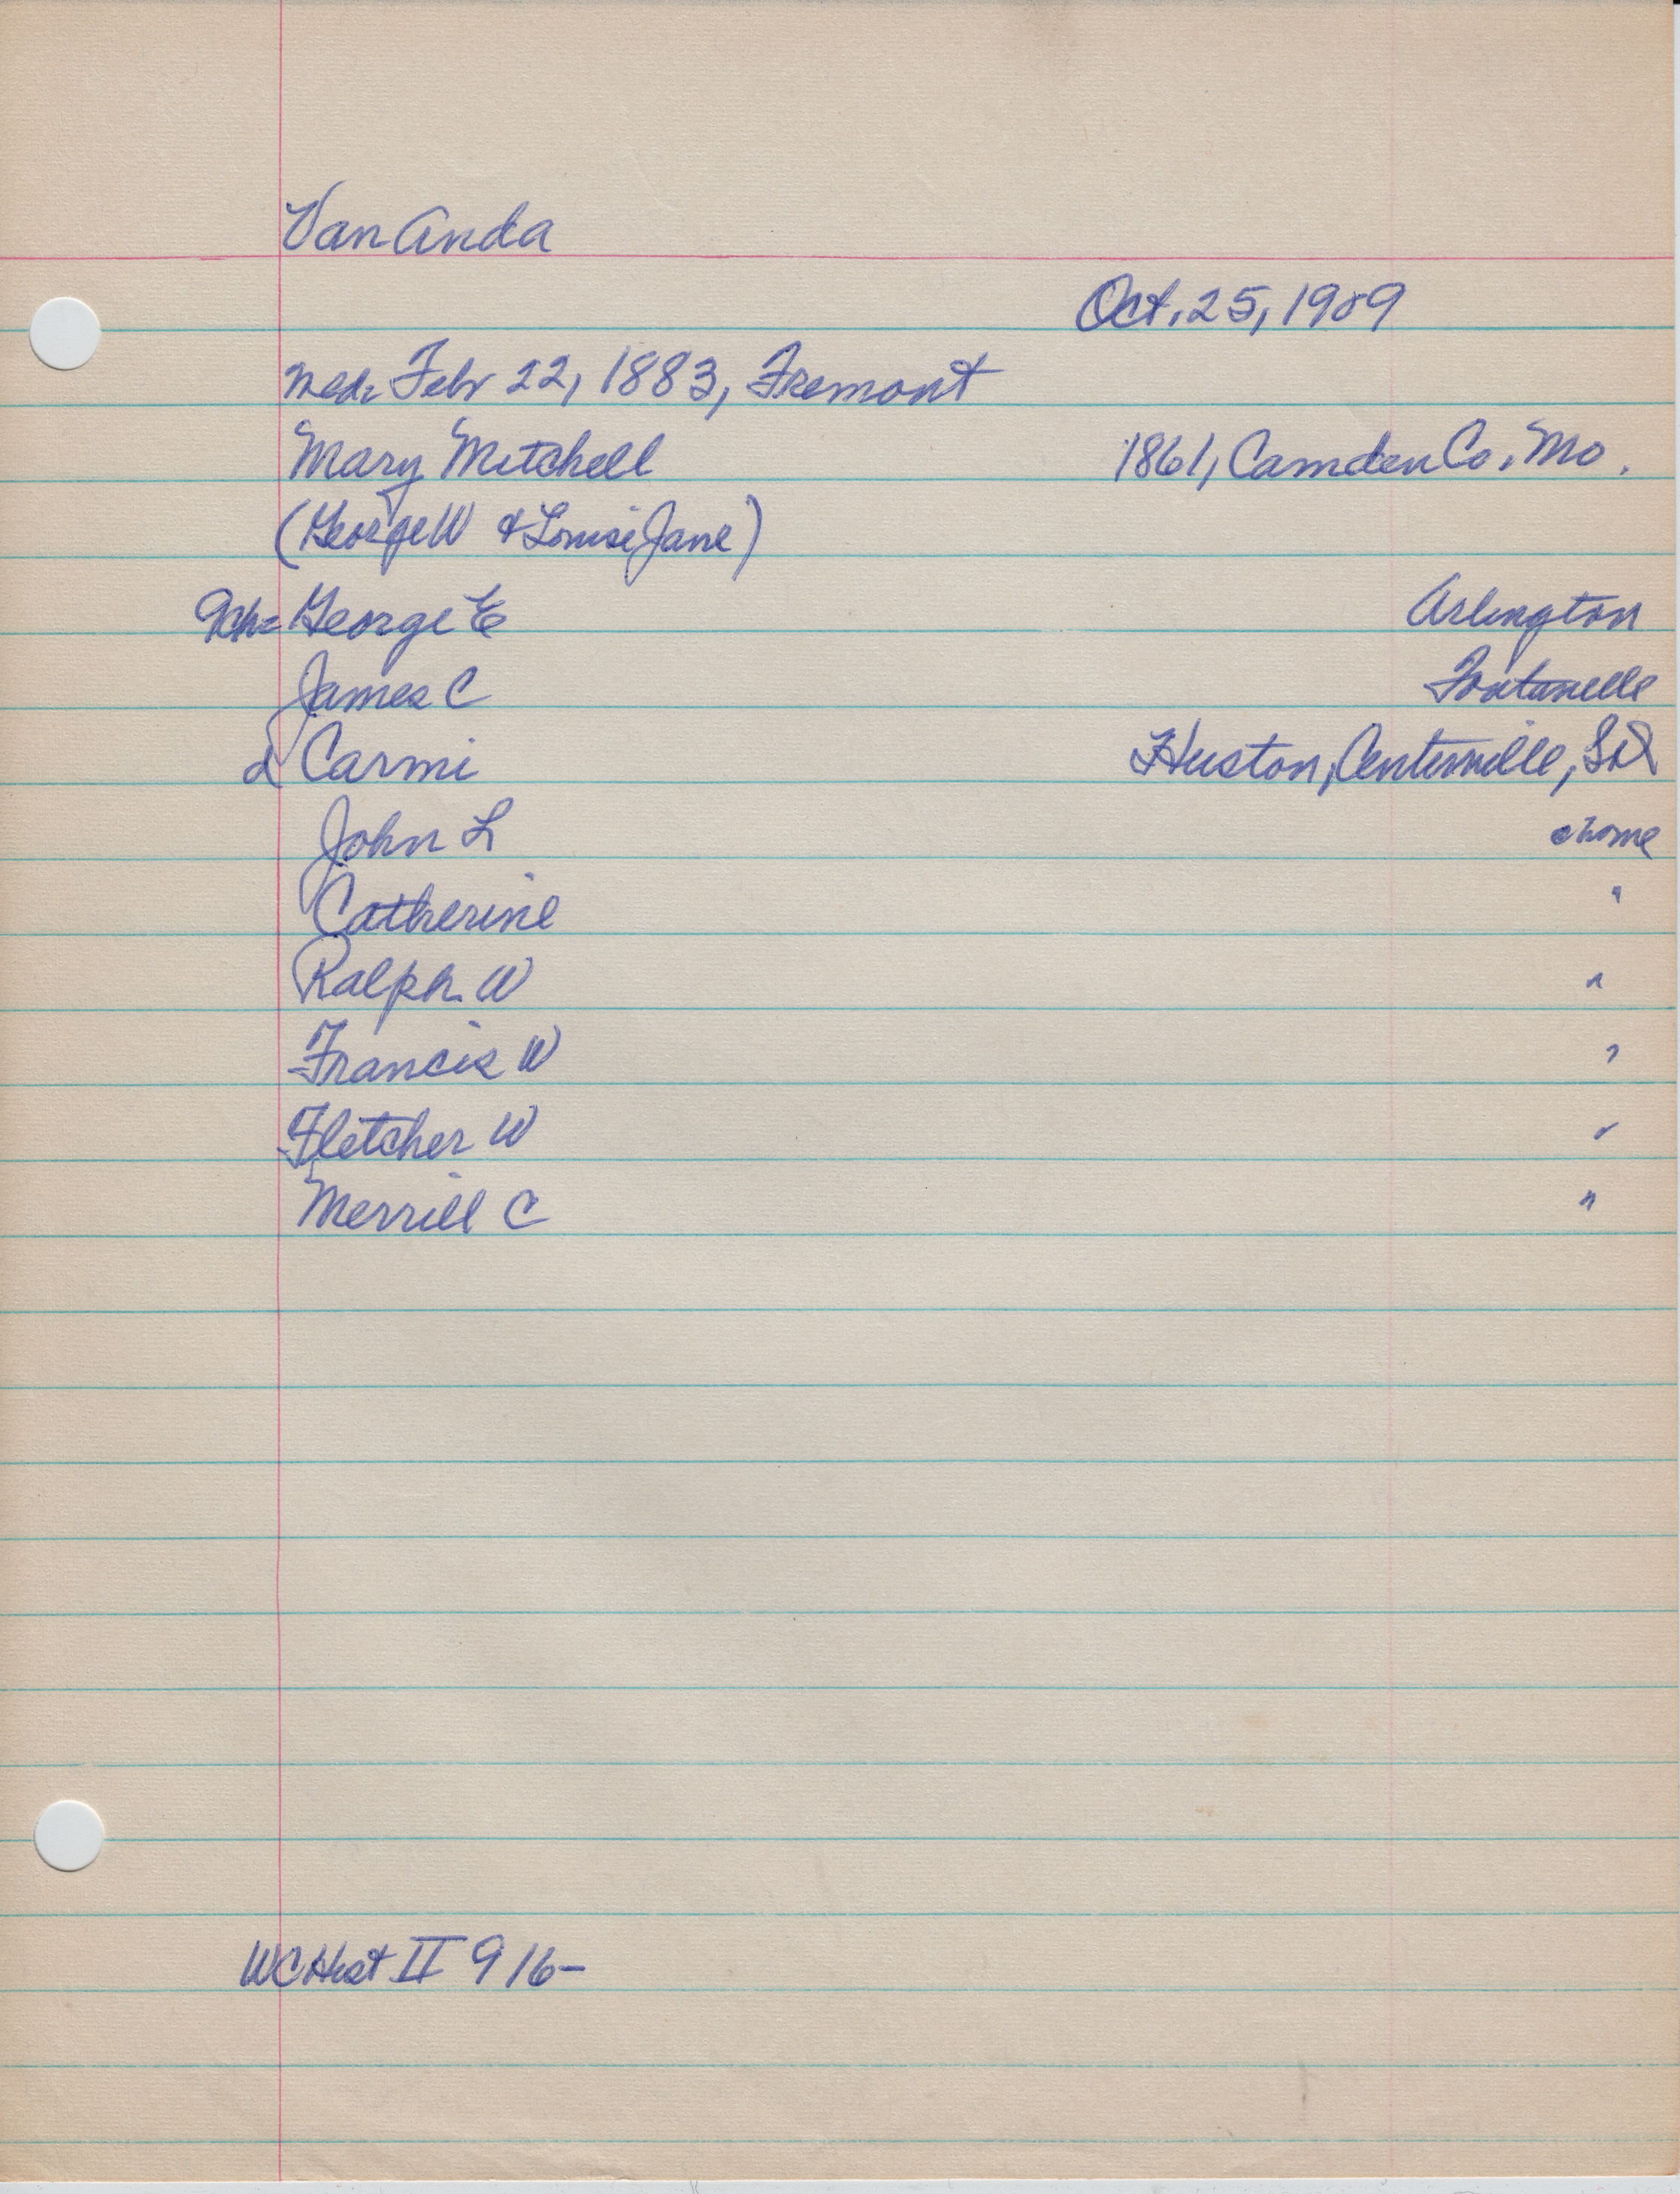 Van Anda
Oct. 25, 1989
med. Febr 22, 1883, Fremont
Mary Mitchell 1861, Camden Co. Mo.
(George W & Louise Jane)
9ch= George E Arlington
James C Fontanelle
d Carmi Huston, Centerville, SD
John L @home
Catherine "
Ralph W "
Francis W "
Fletcher W "
Merrill C "
WC Hist II 916-